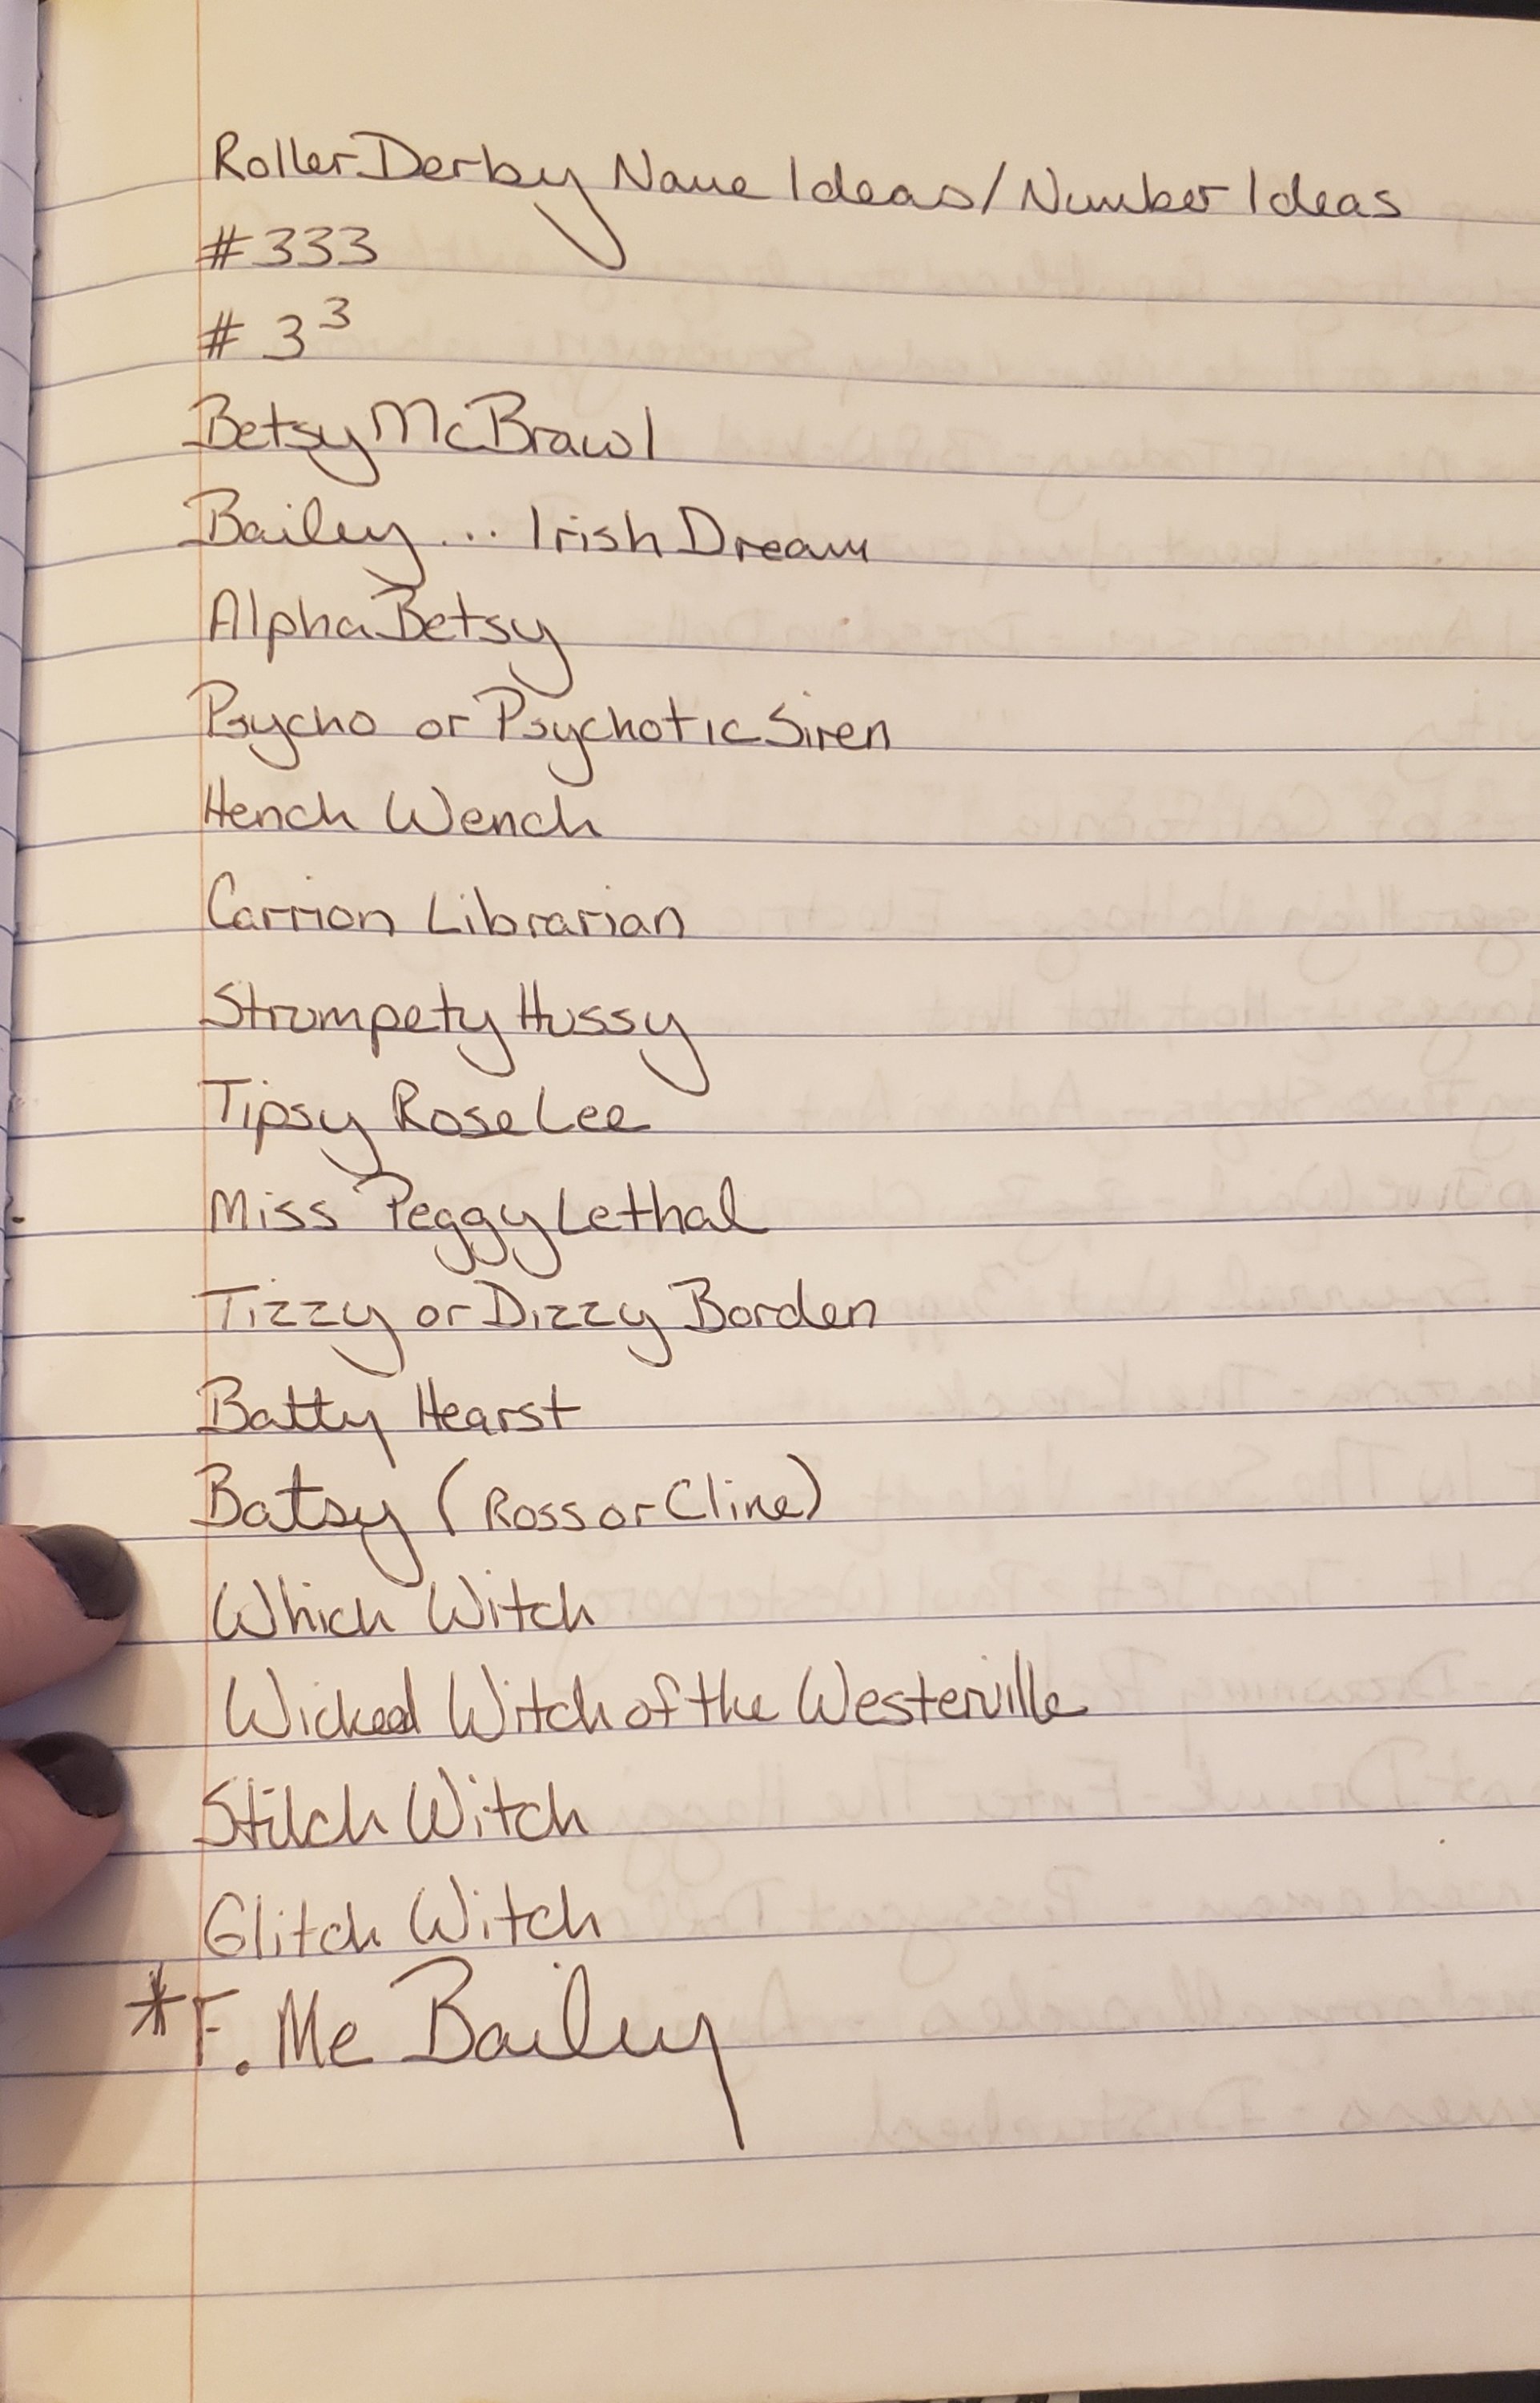 Roller Derby Name Ideas/Number Ideas
#333
#3³
Betsy McBrawl
Bailey... Irish Dream
Alpha Betsy
Psycho or Psychotic Siren
Hench Wench
Carrion Librarian
Strumpety Hussy
Tipsy Rose Lee
Miss Peggy Lethal
Tizzy or Dizzy Borden
Batty Hearst
Batsy (Ross or Cline)
Which Witch
Wicked Witch of the Westerville
Stitch Witch
Glitch Witch
*F. Me Bailey